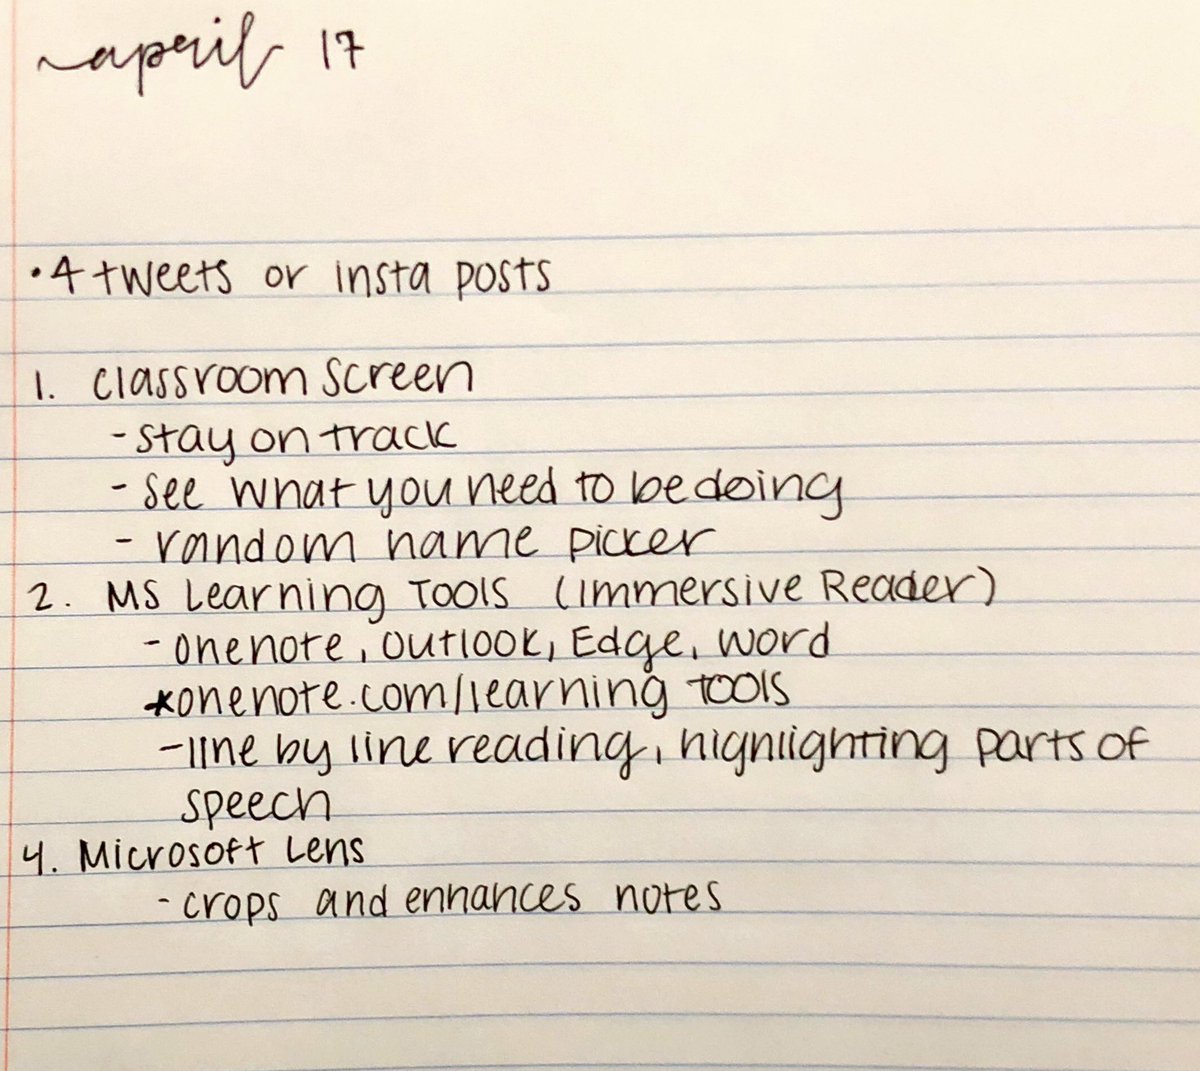 april 17
• 4 tweets or insta posts
1. classroom screen
- stay on track
- see what you need to be doing
- random name picker
2. MS Learning Tools (Immersive Reader)
- onenote, outlook, Edge, word
*onenote.com/learning tools
- line by line reading, highlighting parts of
speech
4. Microsoft Lens
- crops and enhances notes